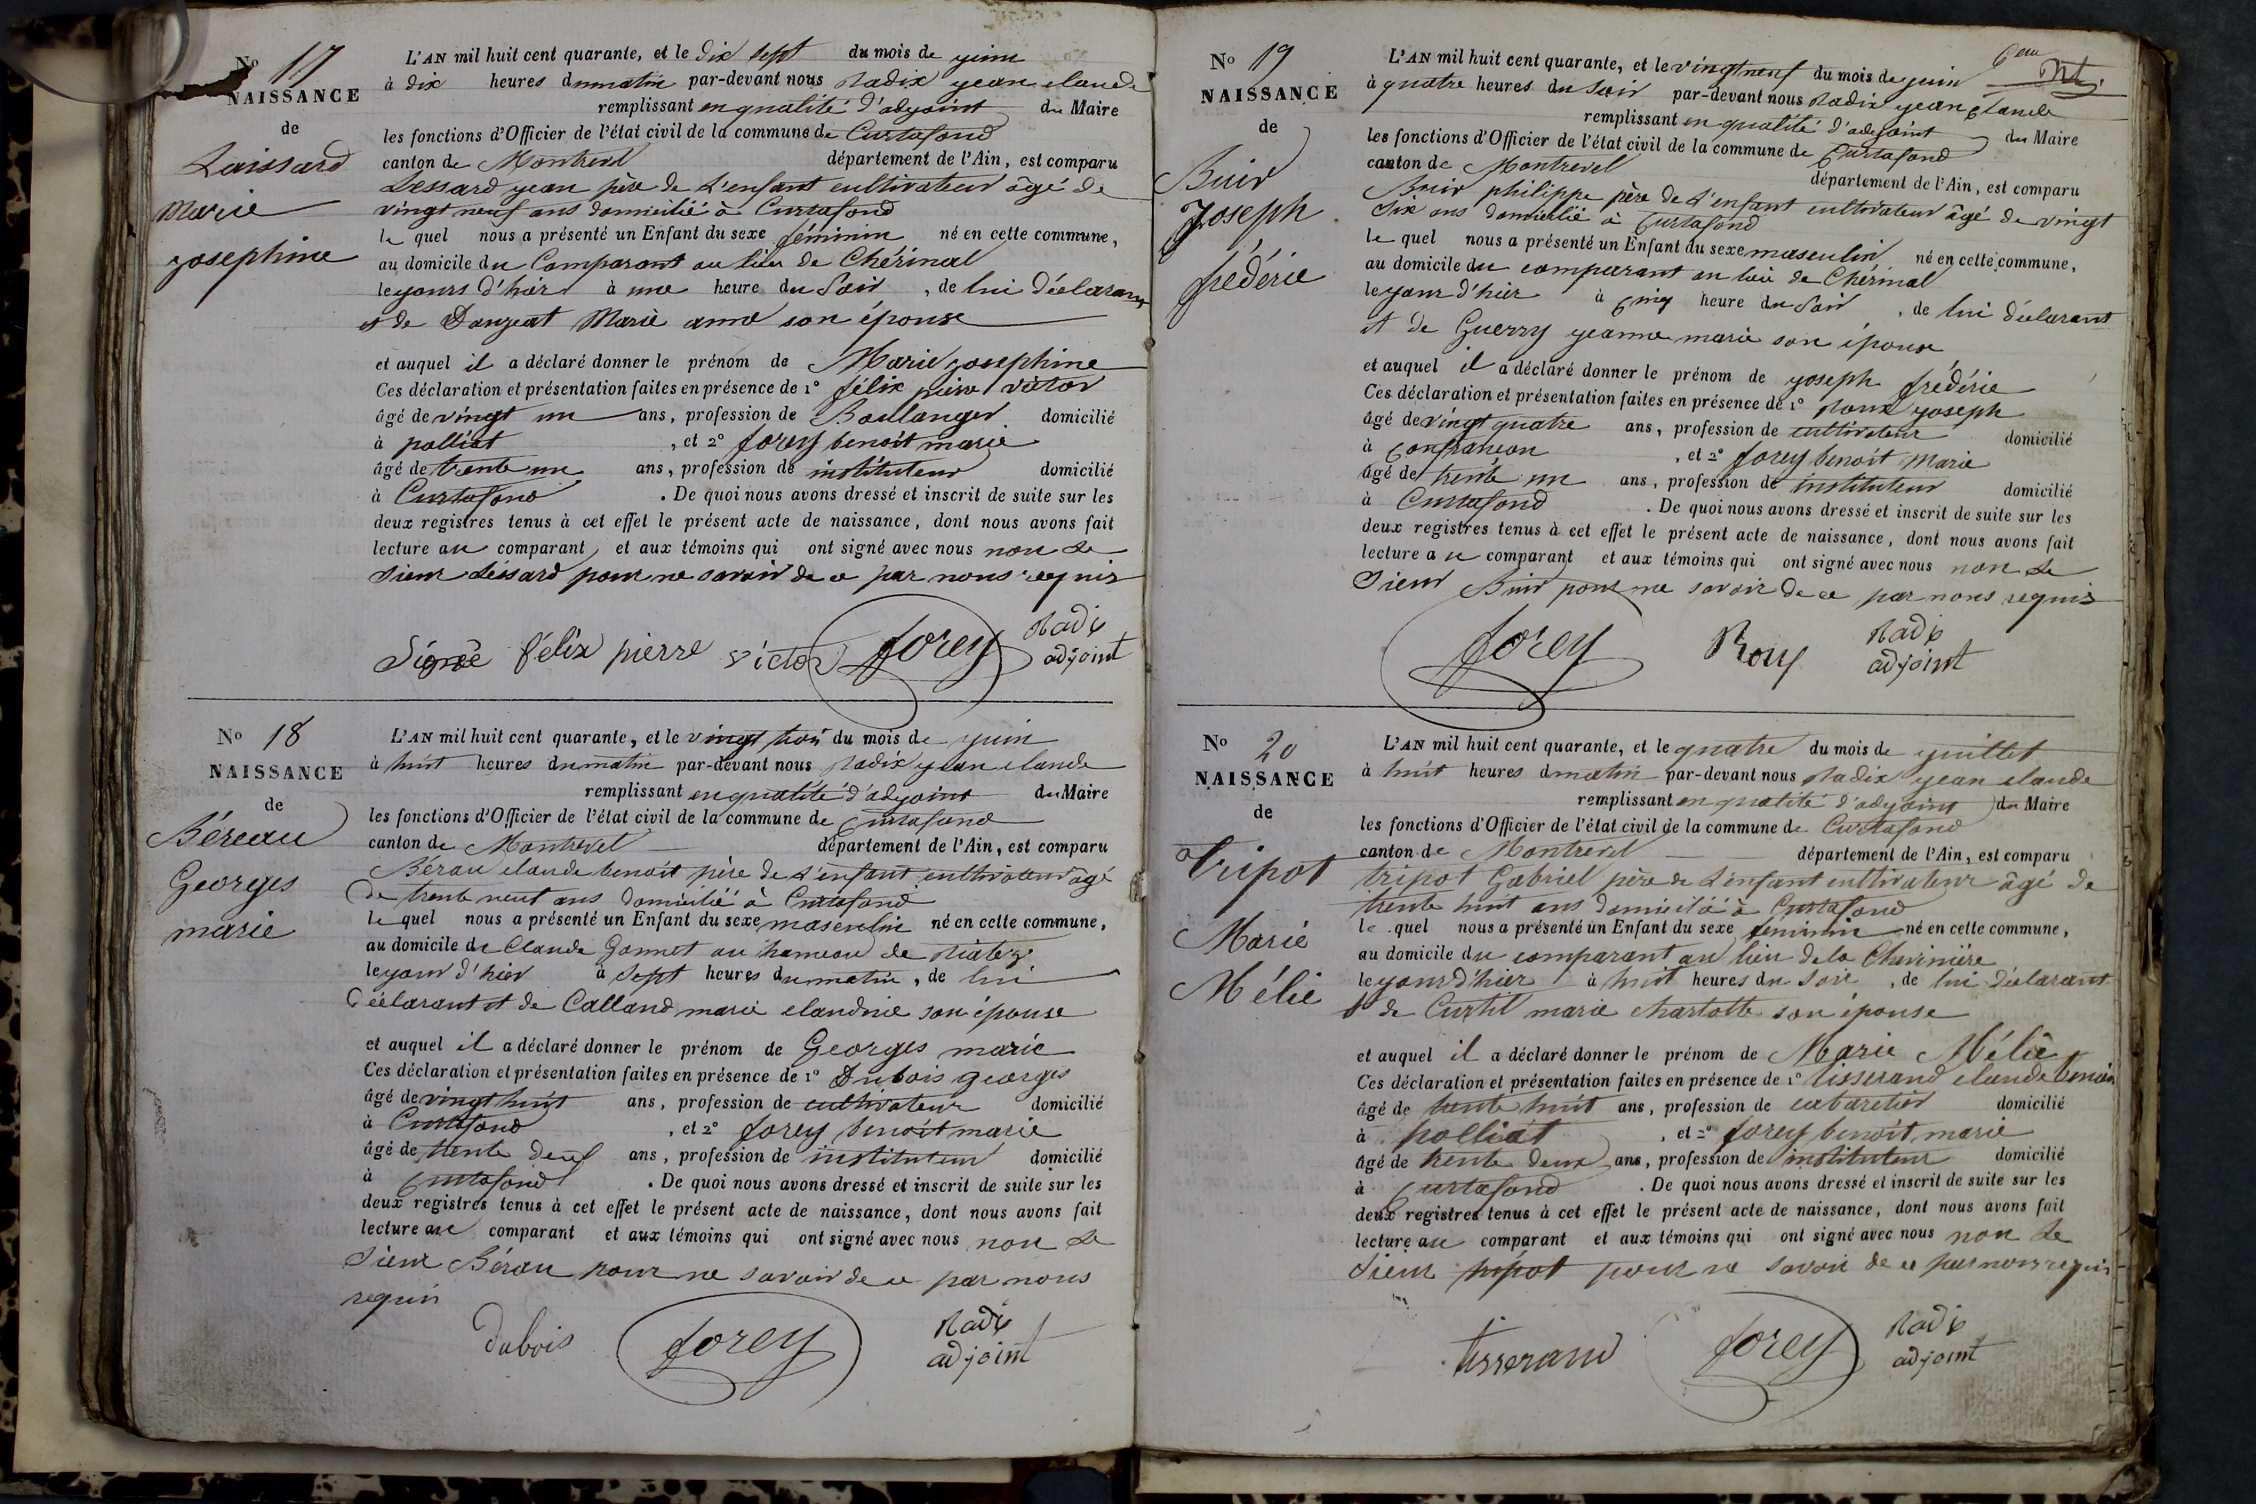 No 17
NAISSANCE
de
Laissard
Marie
Josephine
L'AN mil huit cent quarante, et le dix sept du mois de juin
à dix heures du matin par-devant nous Radix jean claude
remplissant en qualité d'adjoint du Maire
les fonctions d'Officier de l'état civil de la commune de Curtafond
canton de Montrevel département de l'Ain, est comparu
Lessard jean père de l'enfant cultivateur âgé de
vingt neuf ans domicilié à Curtafond
le quel nous a présenté un Enfant du sexe féminin né en cette commune,
au domicile du Comparant au lieu de Chérinal
le jours d'hier à une heure du Soir, de lui déclarant
et de Dangeat Marie anne son épouse
et auquel il a déclaré donner le prénom de Marie josephine
Ces déclaration et présentation faites en présence de 1° félix pierre victor
âgé de vingt un ans, profession de Boullanger domicilié
à polliat, et 2° forey benoit marie
âgé de trente un ans, profession de instituteur domicilié
à Curtafond. De quoi nous avons dressé et inscrit de suite sur les
deux registres tenus à cet effet le présent acte de naissance, dont nous avons fait
lecture au comparant, et aux témoins qui ont signé avec nous non le
sieur Léssard pour ne savoir de ce par nous requis
Signé félix pierre victor forey Radix
adjoint
No 18
NAISSANCE
de
Béreau
Georges
marie
L'AN mil huit cent quarante, et le vingt trois du mois de juin
à huit heures du matin par-devant nous Radix jean claude
remplissant en qualité d'adjoint du Maire
les fonctions d'Officier de l'état civil de la commune de Curtafond
canton de Montrevel département de l'Ain, est comparu
Bérau claude benoit père de l'enfant cultivateur âgé
de trente neuf ans domicilié à Curtafond
le quel nous a présenté un Enfant du sexe masculin né en cette commune,
au domicile de Claude Gonnet au hameau de
le jour d'hier à sept heures du matin, de lui
déclarant et de Calland marie claudine son épouse
et auquel il a déclaré donner le prénom de Georges marie
Ces déclaration et présentation faites en présence de 1° Dubois georges
âgé de vingt huit ans, profession de cultivateur domicilié
à Curtafond, et 2° forey benoit marie
âgé de trente deux ans, profession de instituteur domicilié
à Curtafond. De quoi nous avons dressé et inscrit de suite sur les
deux registres tenus à cet effet le présent acte de naissance, dont nous avons fait
lecture au comparant et aux témoins qui ont signé avec nous non le
sieur Bérau pour ne savoir de ce par nous
requis
dubois forey Radix
adjoint
No 19
NAISSANCE
de
Buir
Joseph
frédéric
L'AN mil huit cent quarante, et le vingt neuf du mois de juin
à quatre heures du Soir par-devant nous Radix jean claude
remplissant en qualité d'adjoint du Maire
les fonctions d'Officier de l'état civil de la commune de Curtafond
canton de Montrevel département de l'Ain, est comparu
Buir philippe père de l'enfant cultivateur âgé de vingt
six ans domicilié à Curtafond
le quel nous a présenté un Enfant du sexe masculin né en cette commune,
au domicile du comparant au lieu de Chérinal
le jour d'hier à cinq heure du Soir, de lui déclarant
et de Guerry jeanne marie son épouse
et auquel il a déclaré donner le prénom de joseph frédéric
Ces déclaration et présentation faites en présence de 1° Roux joseph
âgé de vingt quatre ans, profession de cultivateur domicilié
à Confrancon, et 2° forey benoit Marie
âgé de trente un ans, profession de instituteur domicilié
à Curtafond. De quoi nous avons dressé et inscrit de suite sur les
deux registres tenus à cet effet le présent acte de naissance, dont nous avons fait
lecture au comparant et aux témoins qui ont signé avec nous non le
Sieur Buir pour ne savoir de ce par nous requis
forey Roux Radix
adjoint
No 20
NAISSANCE
de
Tripot
Marie
Mélie
L'AN mil huit cent quarante, et le quatre du mois de juillet
à huit heures du matin par-devant nous Radix jean claude
remplissant en qualité d'adjoint du Maire
les fonctions d'Officier de l'état civil de la commune de Curtafond
canton de Montrevel département de l'Ain, est comparu
tripot Gabriel père de l'enfant cultivateur âgé de
trente huit ans domicilié à Curtafond
le quel nous a présenté un Enfant du sexe féminin né en cette commune,
au domicile du comparant au lieu de la Chevinière
le jour d'hier à huit heures du soir, de lui déclarant
et de Curtil marie charlotte son épouse
et auquel il a déclaré donner le prénom de Marie Mélie
Ces déclaration et présentation faites en présence de 1° tisserand claude benoit
âgé de trente huit ans, profession de cabaretier domicilié
à polliat, et 2° forey benoit marie
âgé de trente deux ans, profession de instituteur domicilié
à Curtafond. De quoi nous avons dressé et inscrit de suite sur les
deux registres tenus à cet effet le présent acte de naissance, dont nous avons fait
lecture au comparant et aux témoins qui ont signé avec nous non le
sieur tripot pour ne savoir de ce par nous requis
tisserand forey Radix
adjoint